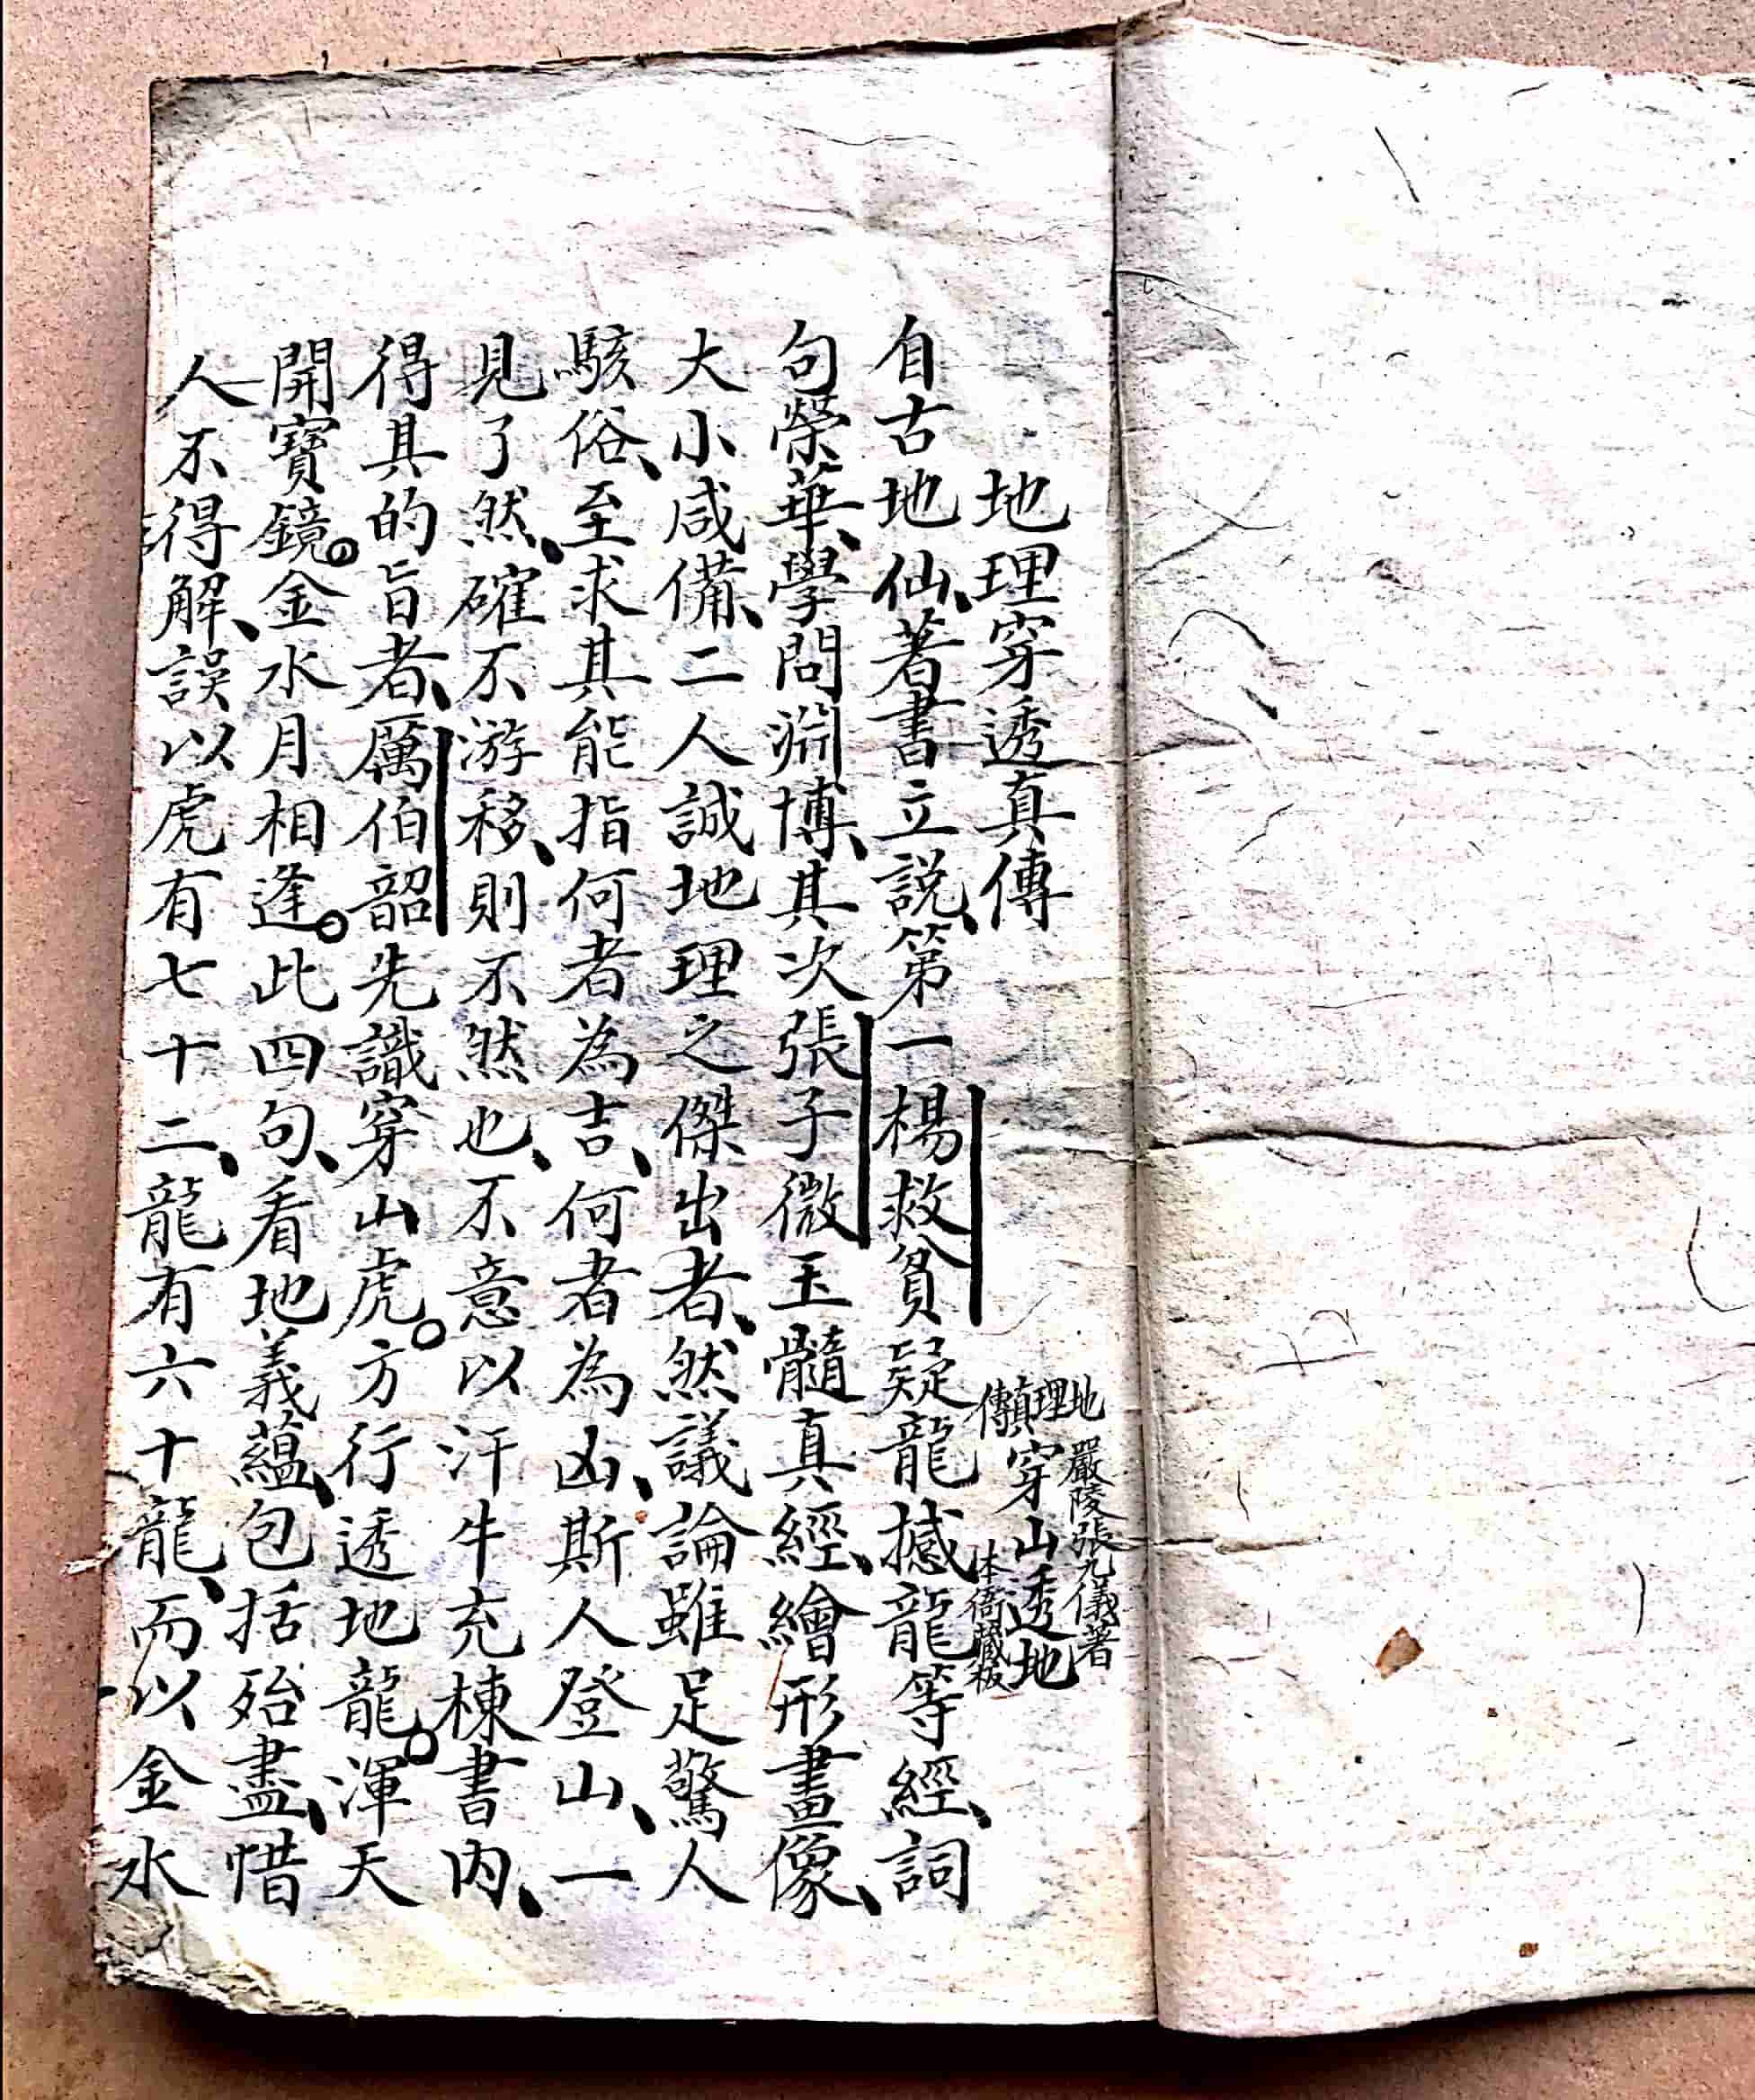 地理穿透真傳
嚴陵張九儀著
地理真傳
穿山透地
本衙藏板
自古地仙、著書立説、第一楊救貧疑龍撼龍等經、詞
句榮華、學問淵博、其次張子微玉髓真經、繪形畫像、
大小咸備、二人誠地理之傑出者、然議論雖足驚人
駭俗、至求其能指何者為吉、何者為凶、斯人登山、一
見了然、確不游移、則不然也、不意以汗牛充棟書内、
得其的旨者、厲伯韶先識穿山虎。方行透地龍。渾天
開寶鏡。金水月相逢。此四句、看地義蘊、包括殆盡、惜
人不得解、誤以虎有七十二、龍有六十龍、而以金水